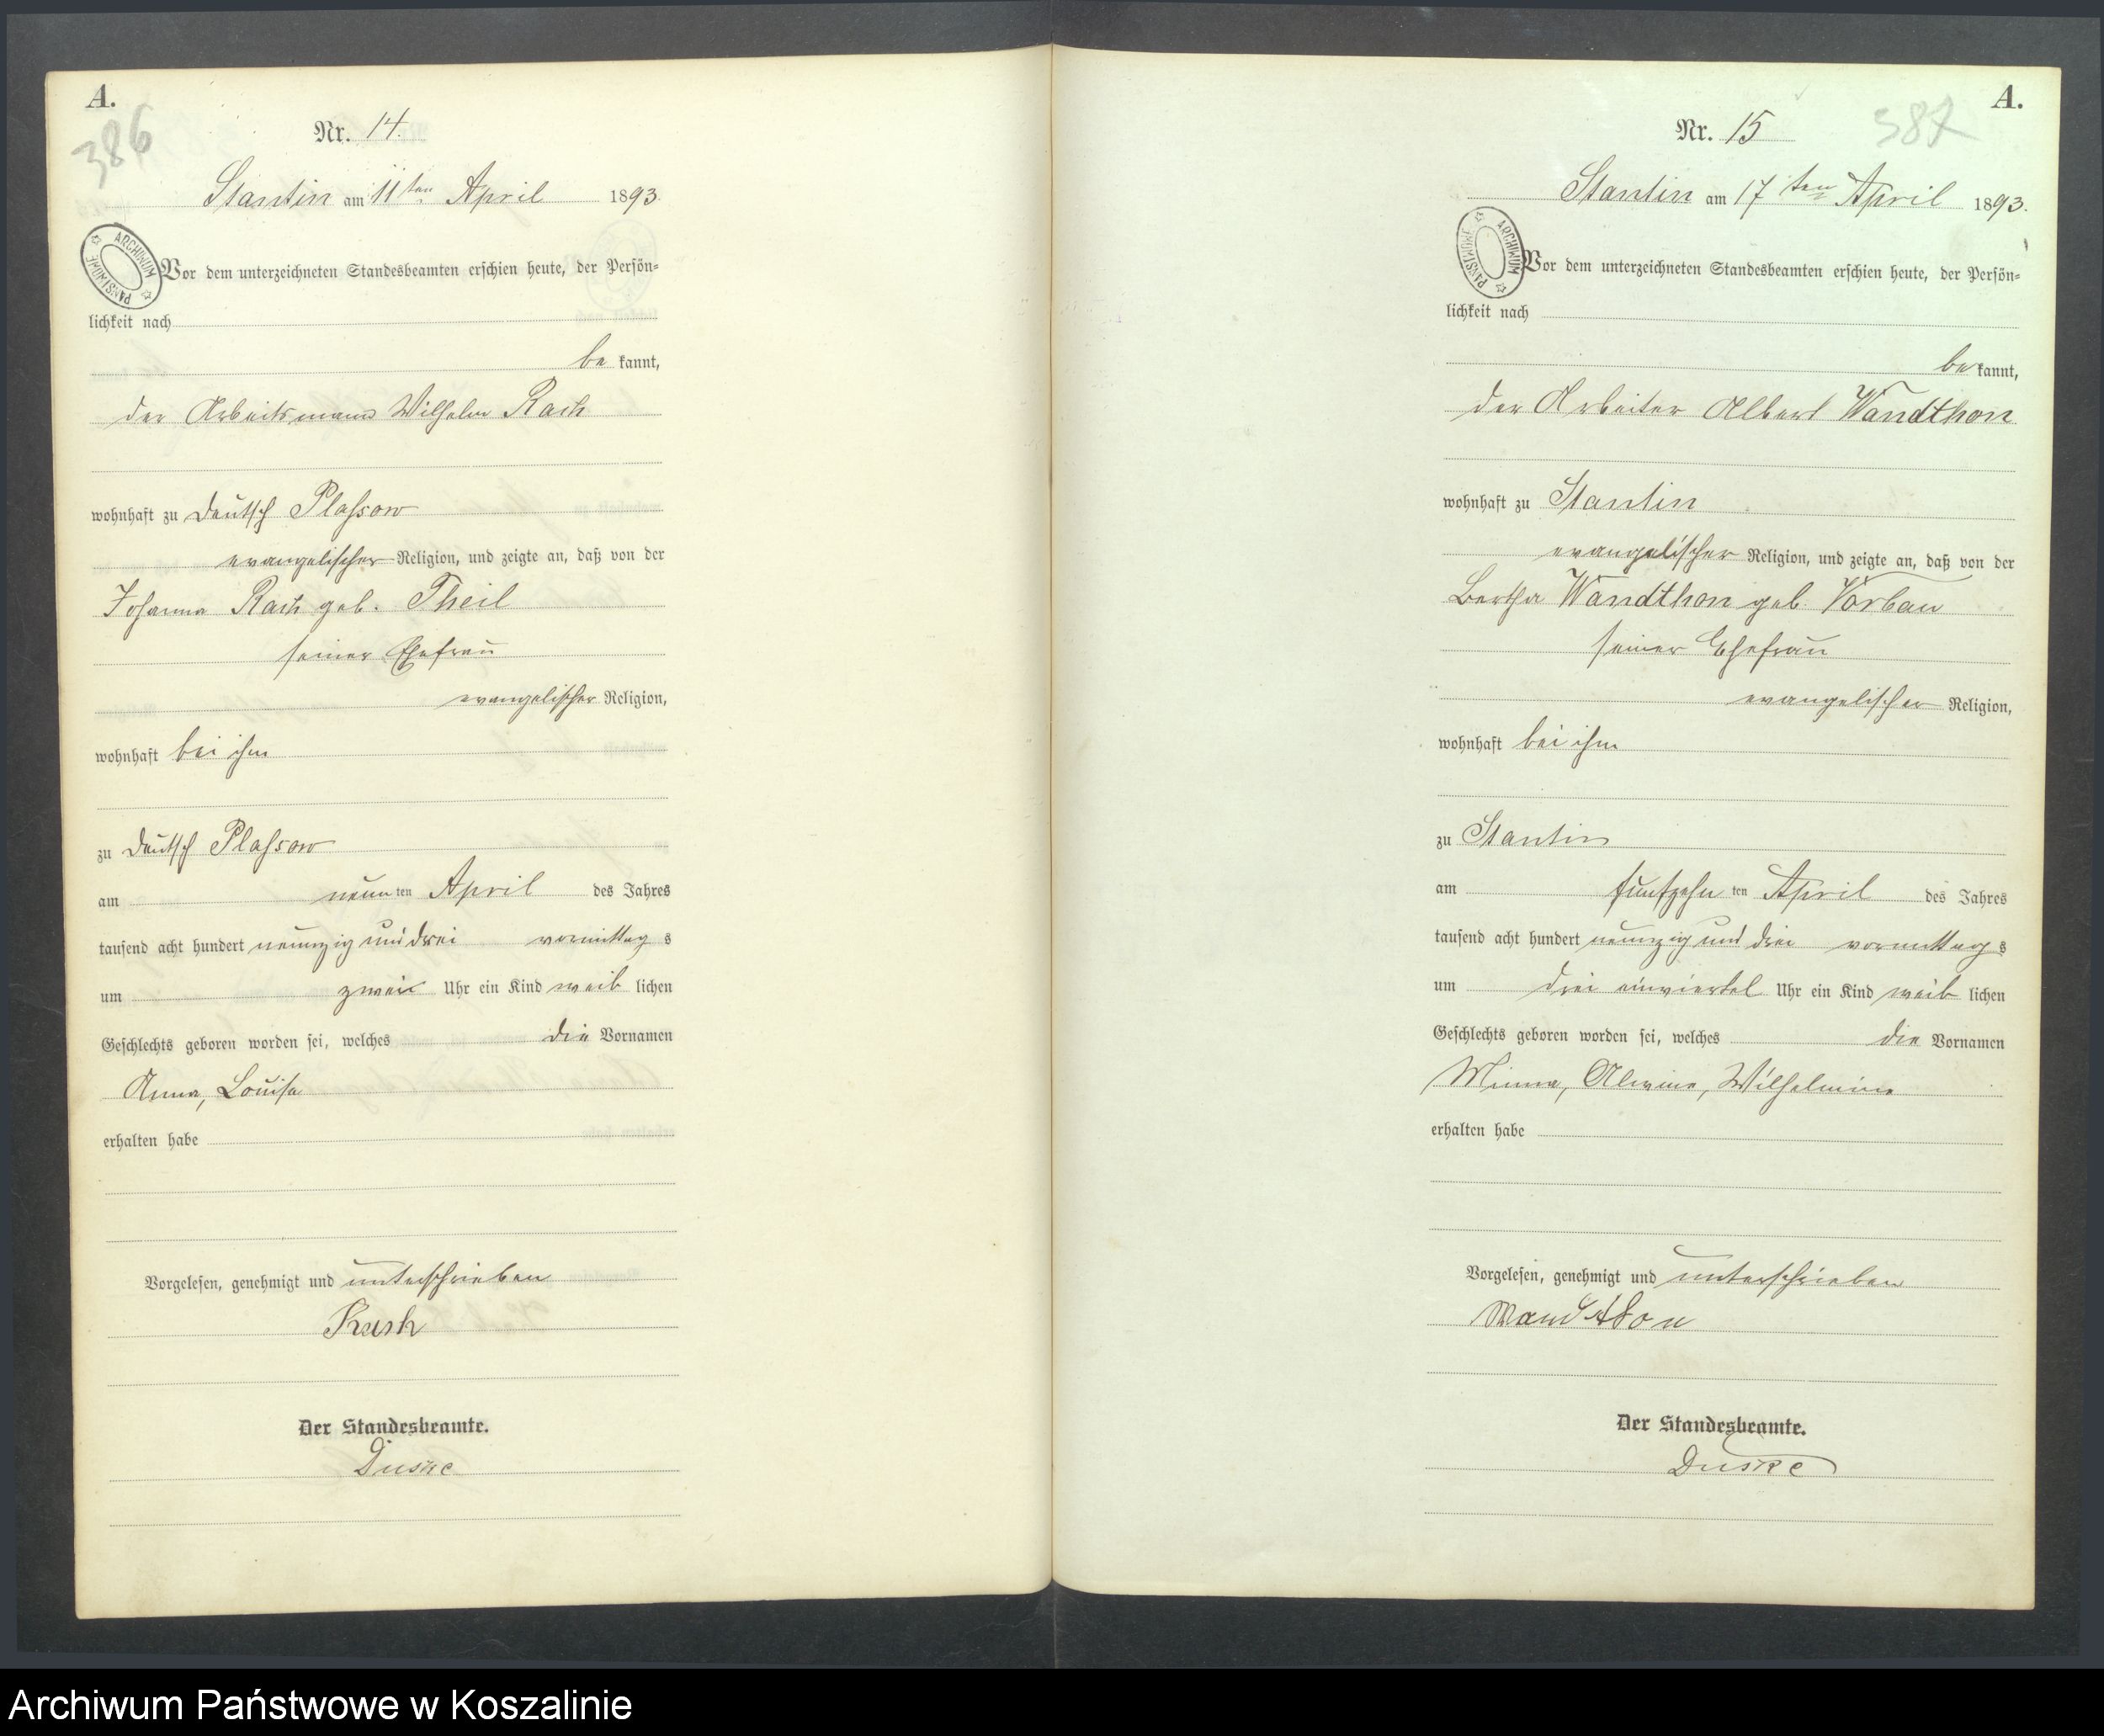 A.
386
Nr. 14.
Stantin am 11ten April 1893.
ARCHIWUM PAŃSTWOWE
Vor dem unterzeichneten Standesbeamten erschien heute, der Persön=
lichkeit nach
be kannt,
der Arbeitsmann Wilhelm Rach
wohnhaft zu Deutsch Plassow
evangelischer Religion, und zeigte an, daß von der
Johanna Rach geb. Theil
seiner Ehefrau
evangelischer Religion,
wohnhaft bei ihm
zu Deutsch Plassow
am neun ten April des Jahres
tausend acht hundert neunzig und drei vormittag s
um zwei Uhr ein Kind weib lichen
Geschlechts geboren worden sei, welches die Vornamen
Anna, Louise
erhalten habe
Vorgelesen, genehmigt und unterschrieben
Rach
Der Standesbeamte.
Duske
A.
387
Nr. 15
Stantin am 17ten April 1893.
ARCHIWUM PAŃSTWOWE
Vor dem unterzeichneten Standesbeamten erschien heute, der Persön=
lichkeit nach
be kannt,
der Arbeiter Albert Wandthon
wohnhaft zu Stantin
evangelischer Religion, und zeigte an, daß von der
Bertha Wandthon geb. Vorbau
seiner Ehefrau
evangelischer Religion,
wohnhaft bei ihm
zu Stantin
am funfzehn ten April des Jahres
tausend acht hundert neunzig und drei vormittag s
um drei einviertel Uhr ein Kind weib lichen
Geschlechts geboren worden sei, welches die Vornamen
Minna, Alwine, Wilhelmine
erhalten habe
Vorgelesen, genehmigt und unterschrieben
Wandthon
Der Standesbeamte.
Duske
Archiwum Państwowe w Koszalinie